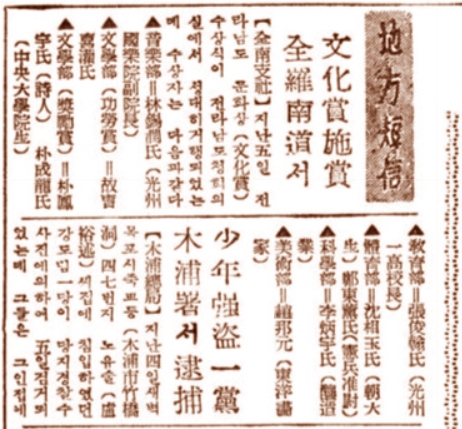 地方短信
文化賞施賞
全羅南道서
【全南支社】지난五일 전
라남도 문화상(文化賞)
수상식이 전라남도청회의
실에서 성대히거행되었는
데 수상자는 다음과같다
▲音樂部=林錫潤氏(光州
國樂院副院長)
▲文學部(功勞賞)=故曺
喜灌氏
▲文學部(奬勵賞)=朴鳳
宇氏(詩人) 朴成龍氏
(中央大學院生)
▲敎育部=張俊翰氏(光州
一高校長)
▲體育部=沈相玉氏(朝大
生) 鄭東 氏(憲兵准尉)
▲科學部=李炳宇氏(釀造
業)
▲美術部=趙邦元(東洋畵
家)
少年强盜一黨
木浦署서逮捕
【木浦總局】지난四일새벽
목포시죽교동(木浦市竹橋
洞)四七번지 노유술(盧
裕 )씨집에 침입하였던
강도범一당이 당지경찰수
사진에의하여 五일검거되
었는데 그들은 그인집에